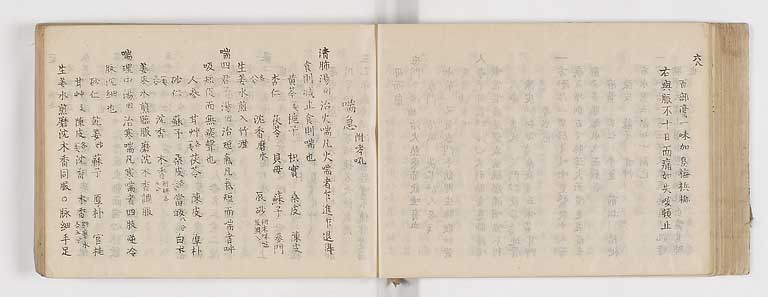 六八
百部膏一味加烏梅檳榔
右與服不十日而痛如失咳頓止
喘急 附哮吼
清肺湯曰治火喘凡火喘者乍進乍退得
食則減止食則喘也
黃芩 梔子 枳實 桑皮 陳皮
杏仁 茯苓 貝母 蘇子 麥門
沈香磨水 辰砂
生姜水煎入竹瀝
喘四君子湯曰治短氣凡氣短而喘者呼
吸短促而無痰聲也
人參 甘草 茯苓 陳皮 厚朴
砂仁 蘇子 桑皮 當歸 白朮
沈香 木香
姜水煎臨服磨沈木香調服
喘理中湯曰治寒喘凡寒喘者四肢逆冷
脉沈細也
砂仁 姜 蘇子 厚朴 官桂
甘草 陳皮 沈香 木香
生姜水煎磨沈木香同服○脉細手足